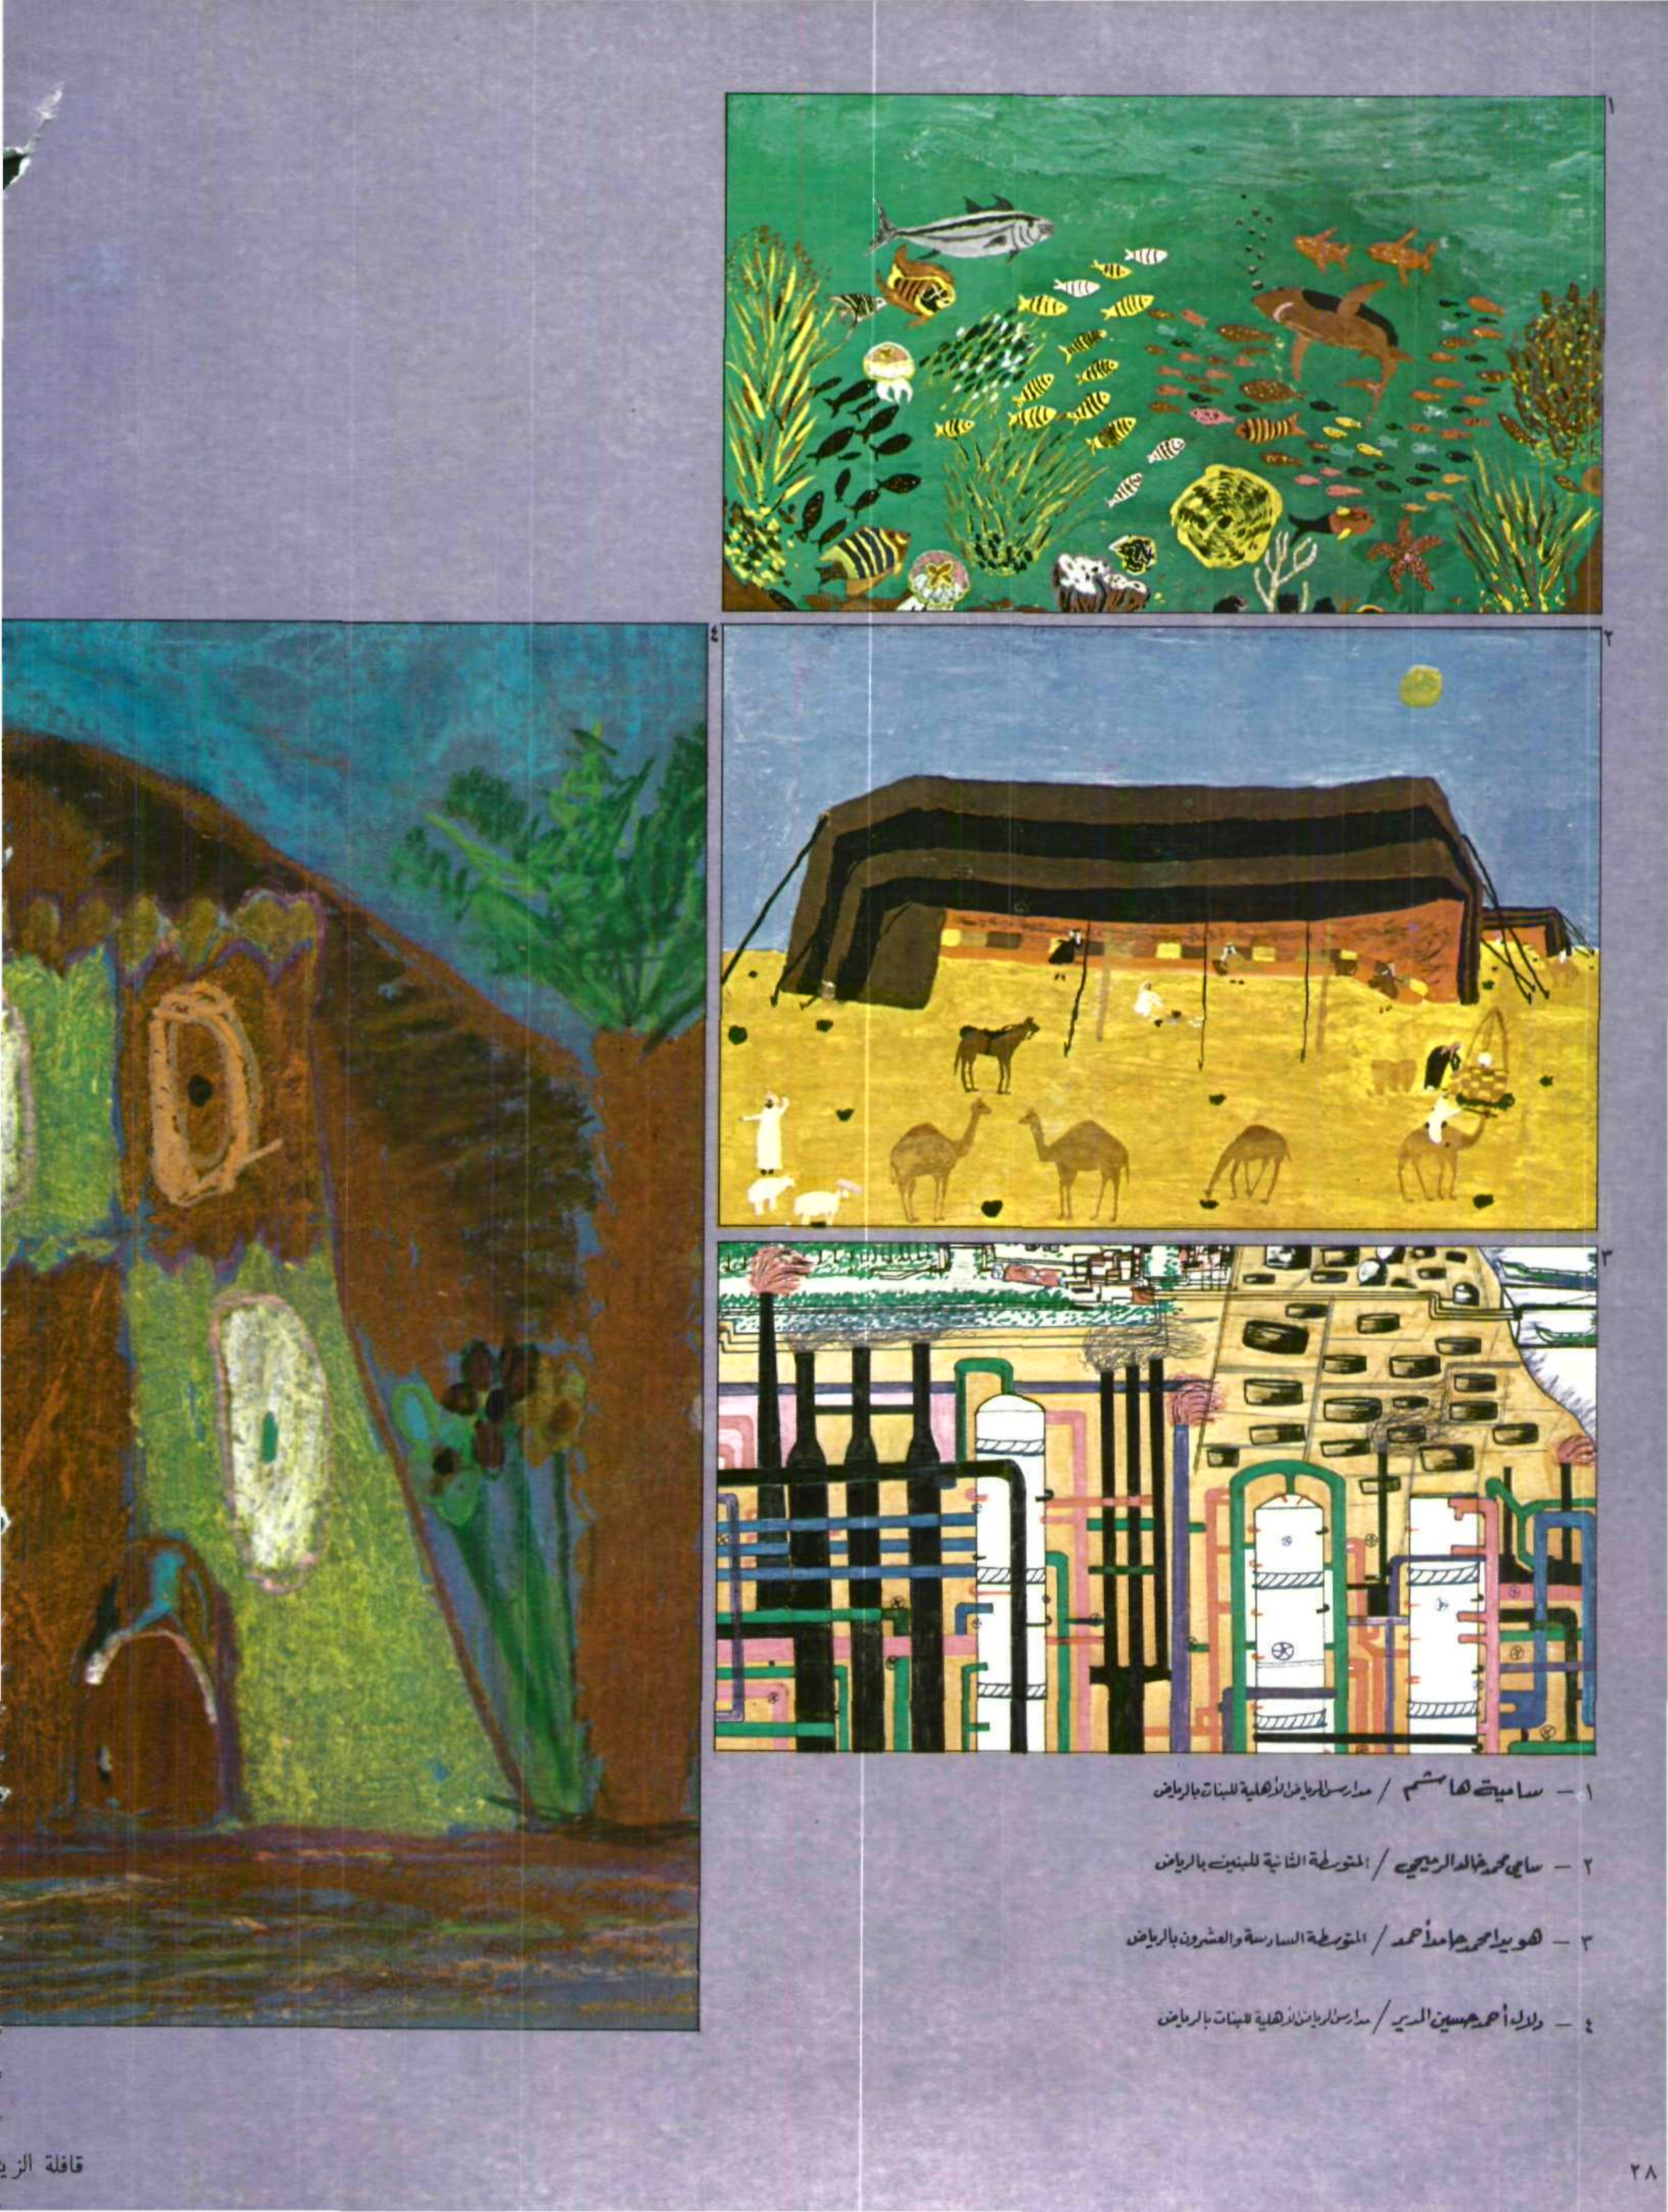 ١
٢
٤
٣
١ – سامية هاشم / مدارس الرياض الأهلية للبنات بالرياض
٢ – سامي محمد خالد الرميحي / المتوسطة الثانية للبنين بالرياض
٣ – هويدا محمد حامد أحمد / المتوسطة السادسة والعشرون بالرياض
٤ – دلال أحمد حسين المدير / مدارس الرياض الأهلية للبنات بالرياض
٢٨
قافلة الزي